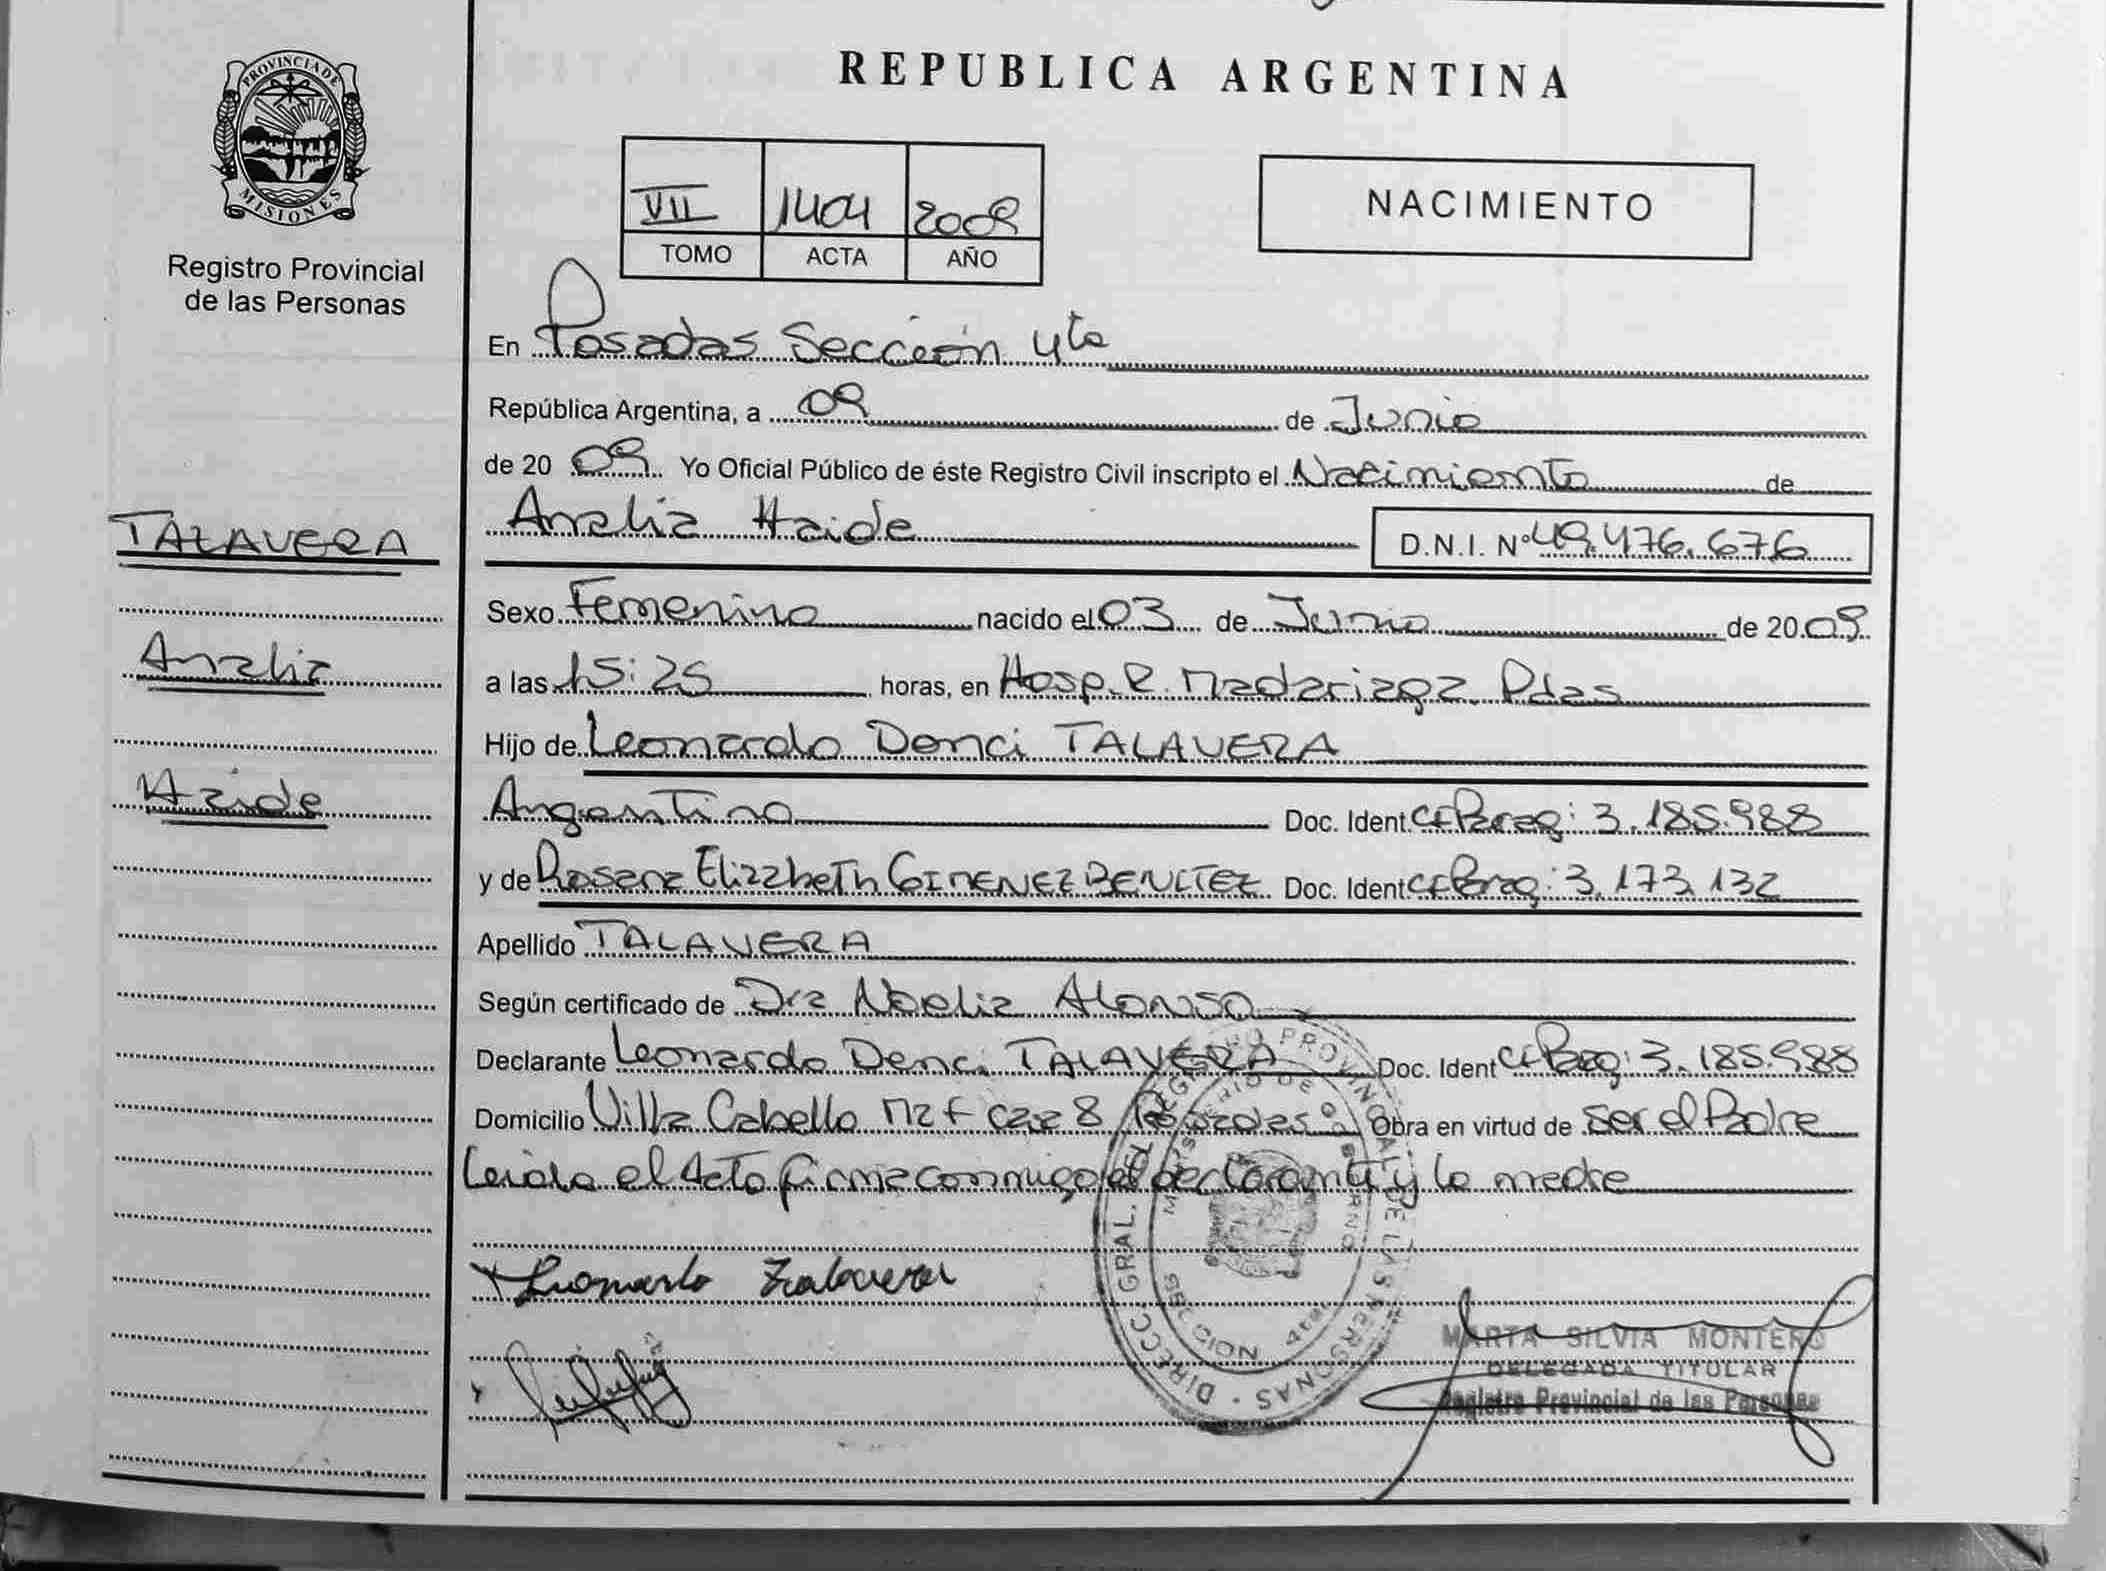 PROVINCIA DE
MISIONES
Registro Provincial
de las Personas
TALAVERA
Analia
Haide
REPUBLICA ARGENTINA
VII 1404 2009
TOMO ACTA AÑO
NACIMIENTO
En Posadas Sección 4ta
República Argentina, a 09 de Junio
de 20 09 Yo Oficial Público de éste Registro Civil inscripto el Nacimiento de
Analia Haide D.N.I. Nº 49.476.676
Sexo Femenino nacido el 03 de Junio de 20 09
a las 15:25 horas, en Hosp. R. Madariaga Pdas
Hijo de Leonardo Denci TALAVERA
Argentino Doc. Ident. CI Parag: 3.185.988
y de Rosana Elizabeth GIMENEZ BENITEZ Doc. Ident CI Parag: 3.173.132
Apellido TALAVERA
Según certificado de Dra Noelia Alonso
Declarante Leonardo Denci TALAVERA Doc. Ident CI Parag: 3.185.988
Domicilio Villa Cabello Mz F casa 8 Posadas Obra en virtud de ser el Padre
Leida el Acta firma conmigo el declarante y la madre
Leonardo Talavera
DIRECC. GRAL. DEL REGISTRO PROVINCIAL DE LAS PERSONAS
MINISTERIO DE GOBIERNO
SECCION 4ta.
MARTA SILVIA MONTERO
DELEGADA TITULAR
Registro Provincial de las Personas